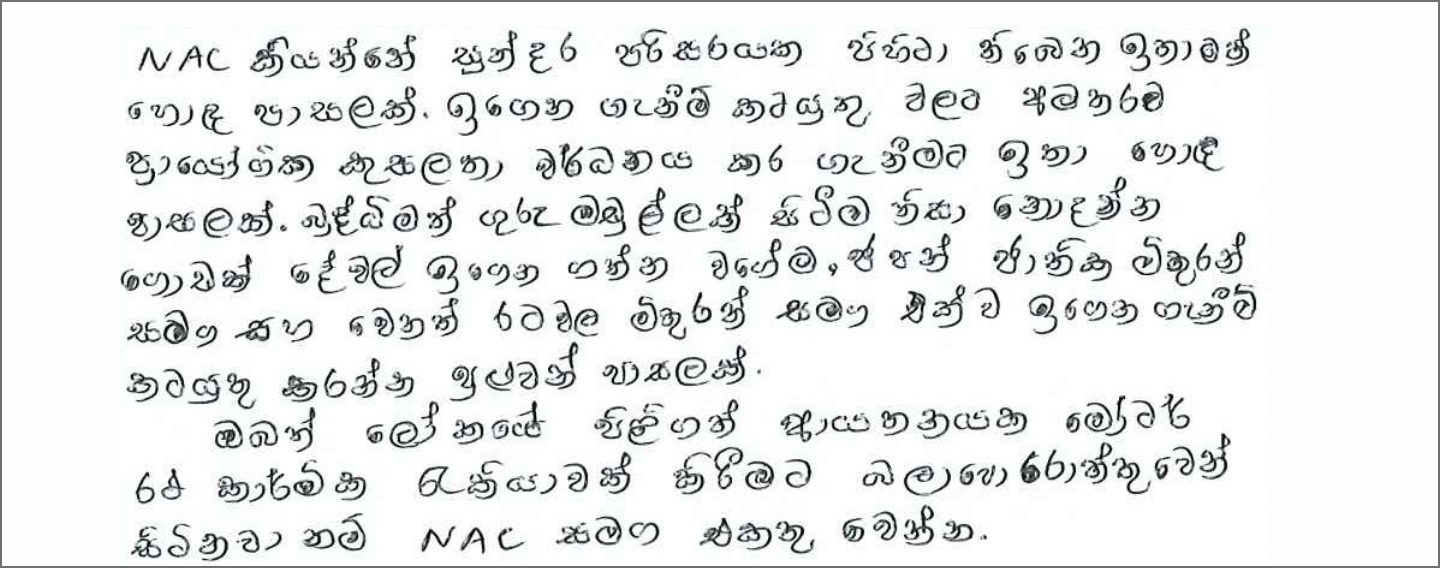 NAC කියන්නේ සුන්දර පරිසරයක පිහිටා තිබෙන ඉතාමත්
හොඳ පාසලක්. ඉගෙන ගැනීම් කටයුතු වලට අමතරව
ප්‍රායෝගික කුසලතා වර්ධනය කර ගැනීමට ඉතා හොඳ
පාසලක්. බුද්ධිමත් ගුරු මඬුල්ලක් සිටීම නිසා නොදන්න
ගොඩක් දේවල් ඉගෙන ගන්න වගේම, ජපන් ජාතික මිතුරන්
සමග සහ වෙනත් රටවල මිතුරන් සමග එක්ව ඉගෙන ගැනීම්
කටයුතු කරන්න පුළුවන් පාසලක්.
ඔබත් ලෝකයේ පිළිගත් ආයතනයක මෝටර්
රථ කාර්මික රැකියාවක් කිරීමට බලාපොරොත්තුවෙන්
සිටිනවා නම් NAC සමග එකතු වෙන්න.